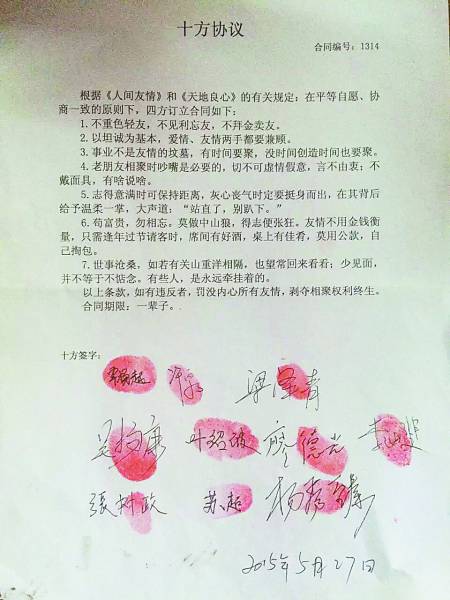 十方协议
合同编号：1314
根据《人间友情》和《天地良心》的有关规定：在平等自愿、协
商一致的原则下，四方订立合同如下：
1.不重色轻友，不见利忘友，不拜金卖友。
2.以坦诚为基本，爱情、友情两手都要兼顾。
3.事业不是友情的坟墓，有时间要聚，没时间创造时间也要聚。
4.老朋友相聚时吵嘴是必要的，切不可虚情假意，言不由衷；不
戴面具，有啥说啥。
5.志得意满时可保持距离，灰心丧气时定要挺身而出，在其背后
给予温柔一掌，大声道：“站直了，别趴下。”
6.苟富贵，勿相忘。莫做中山狼，得志便张狂。友情不用金钱衡
量，只需逢年过节请客时，席间有好酒，桌上有佳肴，莫用公款，自
己掏包。
7.世事沧桑，如若有关山重洋相隔，也望常回来看看；少见面，
并不等于不惦念。有些人，是永远牵挂着的。
以上条款，如有违反者，罚没内心所有友情，剥夺相聚权利终生。
合同期限：一辈子。
十方签字：
梁泽青
叶绍波 廖德光
張树政 苏超
2015年5月27日